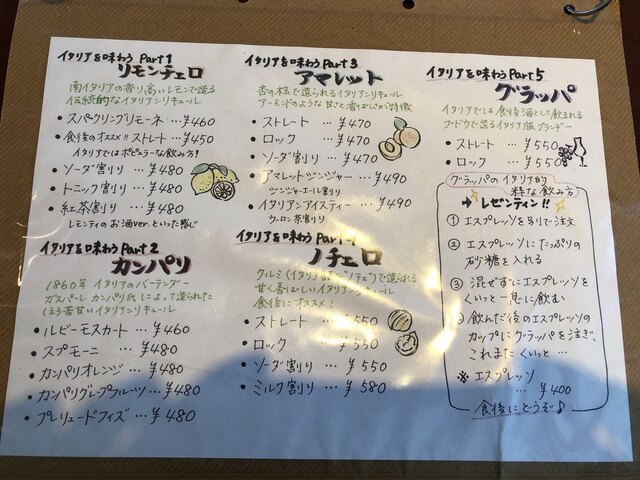 イタリアを味わう Part 1
リモンチェロ
南イタリアの香り高いレモンで造る
伝統的なイタリアンリキュール
• スパークリングリモーネ … ¥460
• 食後のオススメ!! ストレート … ¥450
イタリアではポピュラーな飲み方!
• ソーダ割り … ¥480
• トニック割り … ¥480
• 紅茶割り … ¥480
レモンティのお酒ver.といった感じ
イタリアを味わう Part 2
カンパリ
1860年 イタリアのバーテンダー
ガスパーレ カンパリ氏によって造られた
ほろ苦甘いイタリアンリキュール
• ルビーモスカート … ¥460
• スプモーニ … ¥480
• カンパリオレンジ … ¥480
• カンパリグレープフルーツ … ¥480
• プレリュードフィズ … ¥480
イタリアを味わう Part 3
アマレット
杏の核で造られるイタリアンリキュール
アーモンドのような甘さと香ばしさが特徴
• ストレート … ¥470
• ロック … ¥470
• ソーダ割り … ¥470
• アマレットジンジャー … ¥490
ジンジャーエール割り
• イタリアンアイスティー … ¥490
ウーロン茶割り
イタリアを味わう Part
ノチェロ
クルミ(イタリア語で"ノチェ")で造られる
甘く香ばしいイタリアンリキュール
食後にオススメ!
• ストレート … ¥550
• ロック … ¥550
• ソーダ割り … ¥550
• ミルク割り … ¥580
イタリアを味わう Part 5
グラッパ
イタリアでは食後酒として飲まれる
ブドウで造るイタリア版ブランデー
• ストレート … ¥550
• ロック … ¥550
グラッパのイタリア的
粋な飲み方
→ レゼンティン!!
① エスプレッソを割りで注文
② エスプレッソにたっぷりの
砂糖を入れる
③ 混ぜずにエスプレッソを
くいっと一息に飲む
④ 飲んだ後のエスプレッソの
カップにグラッパを注ぎ、
これまたくいっと…
※ エスプレッソ
… ¥400
食後にどうぞ♪